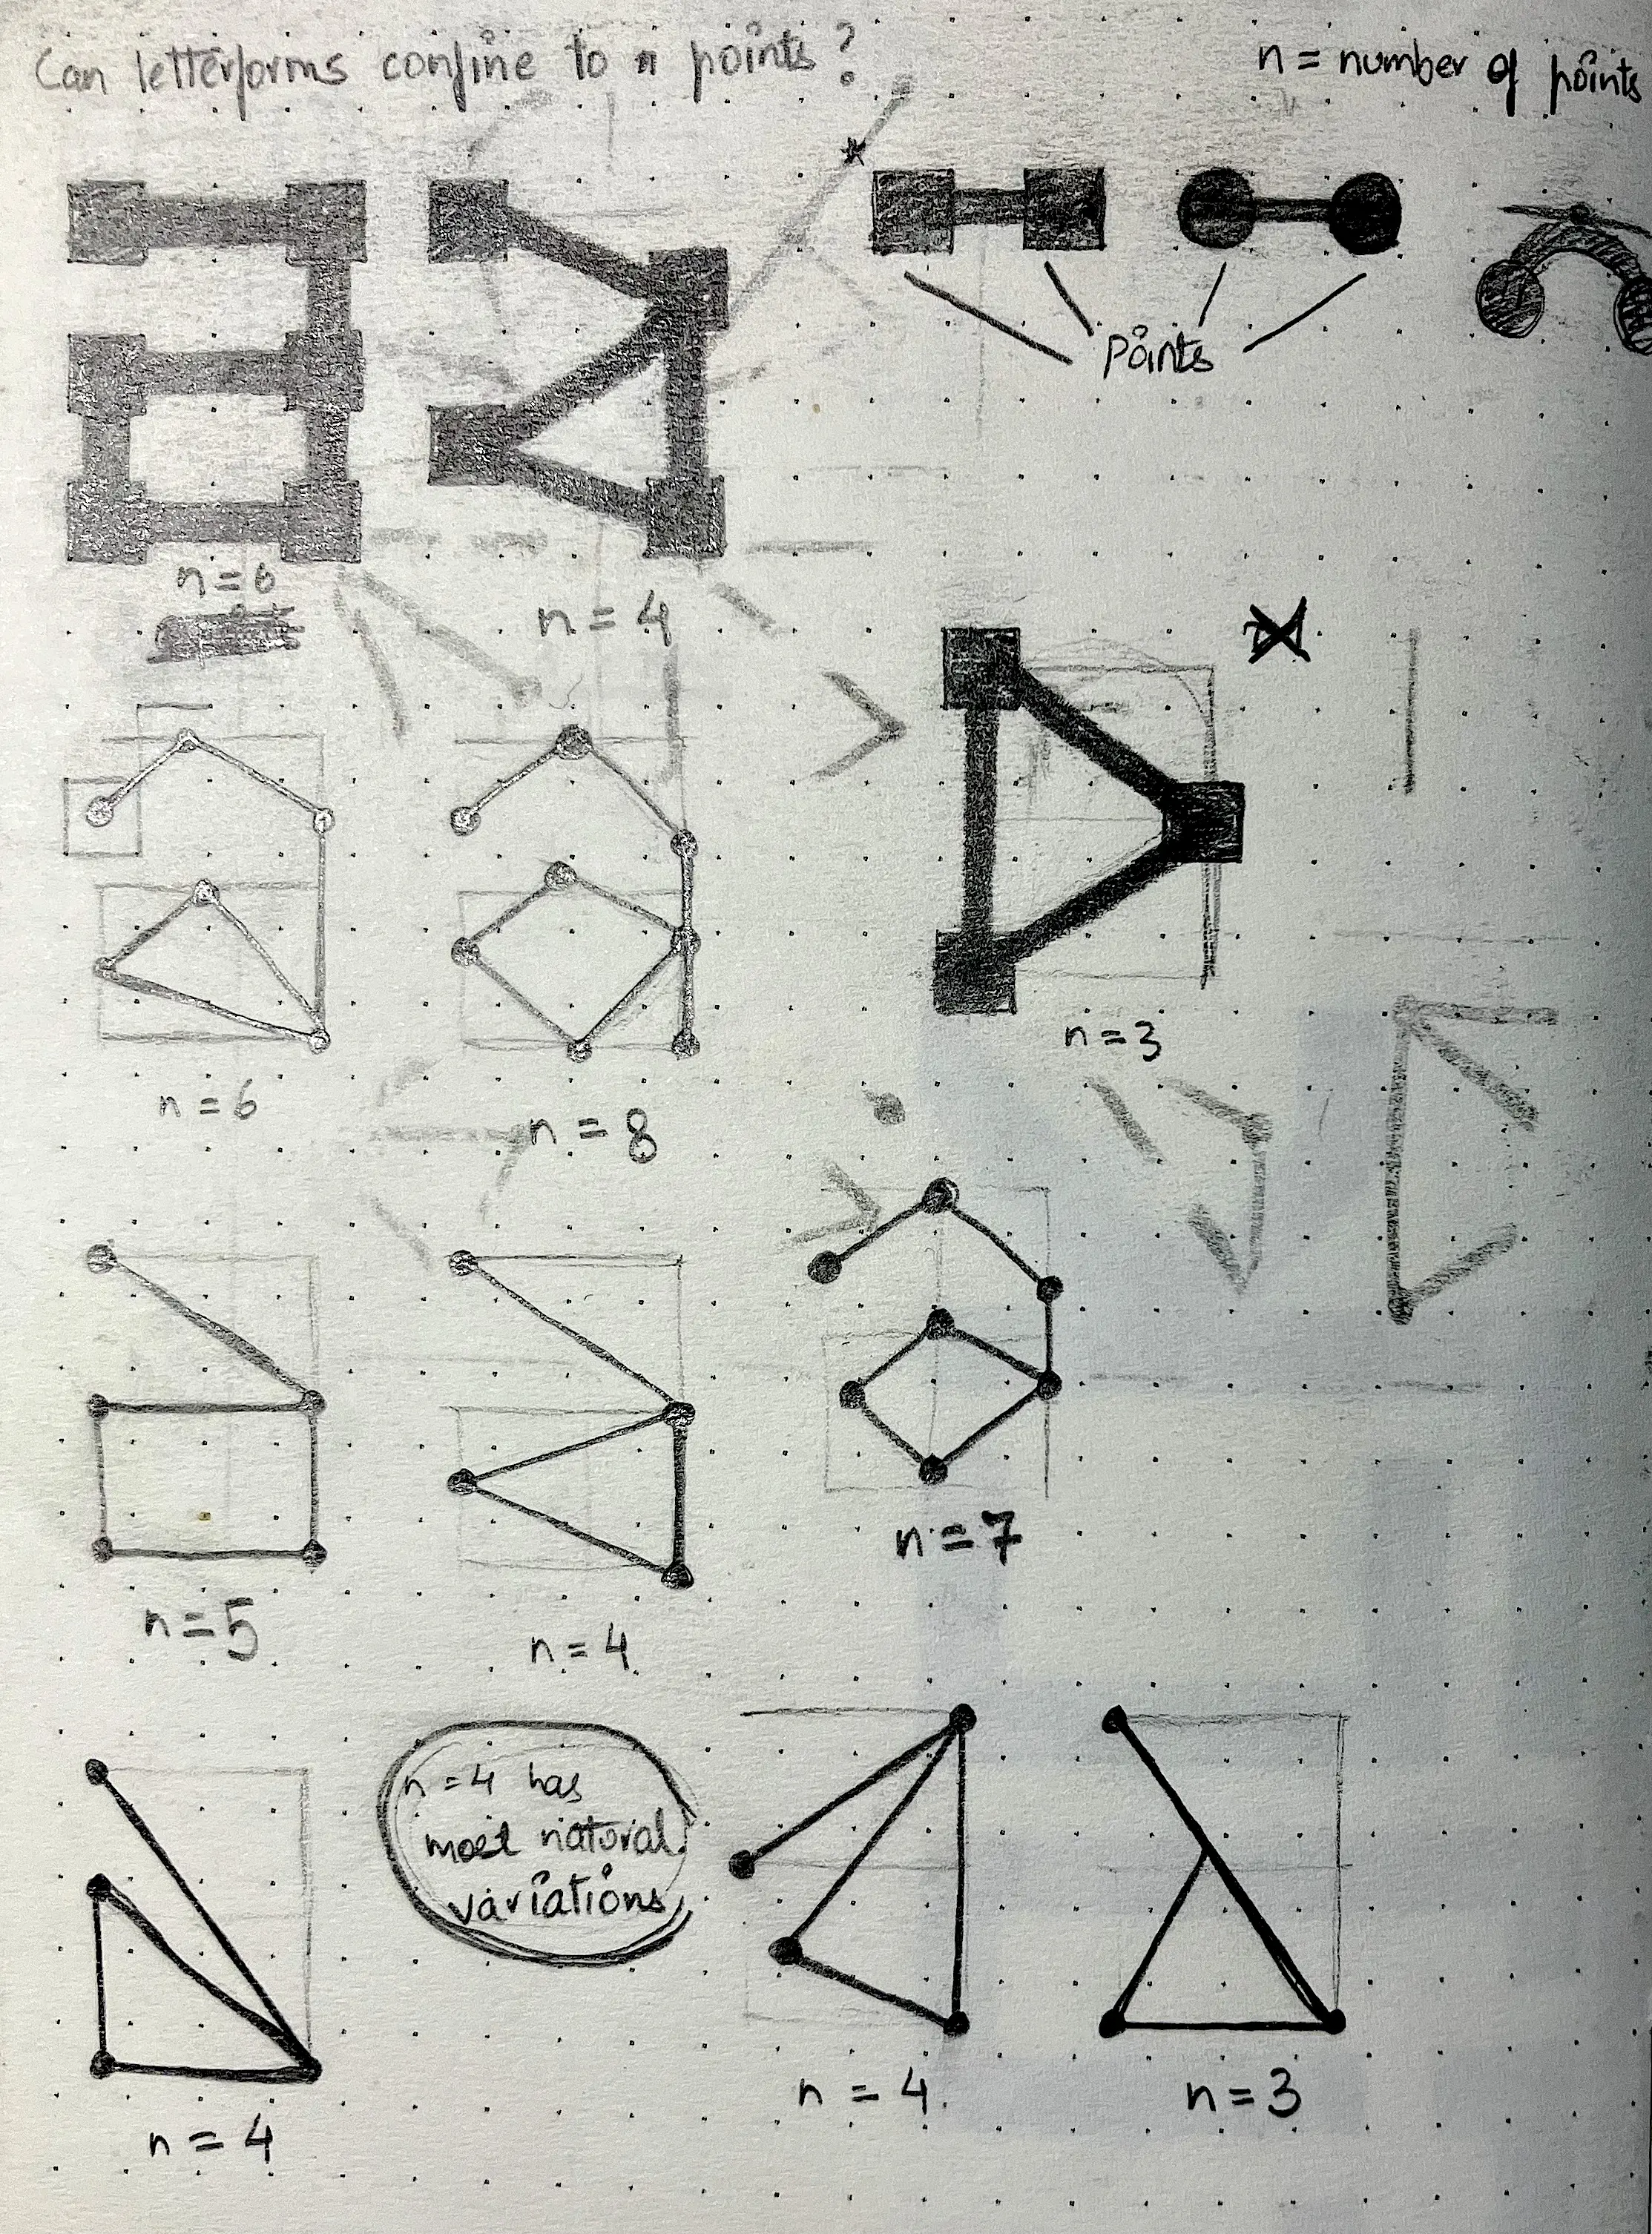 Can letterforms confine to n points?
n = number of points
Points
n = 6
n = 4
n = 3
n = 6
n = 8
n = 7
n = 5
n = 4
n = 4 has
most natural
variations
n = 4
n = 3
n = 4